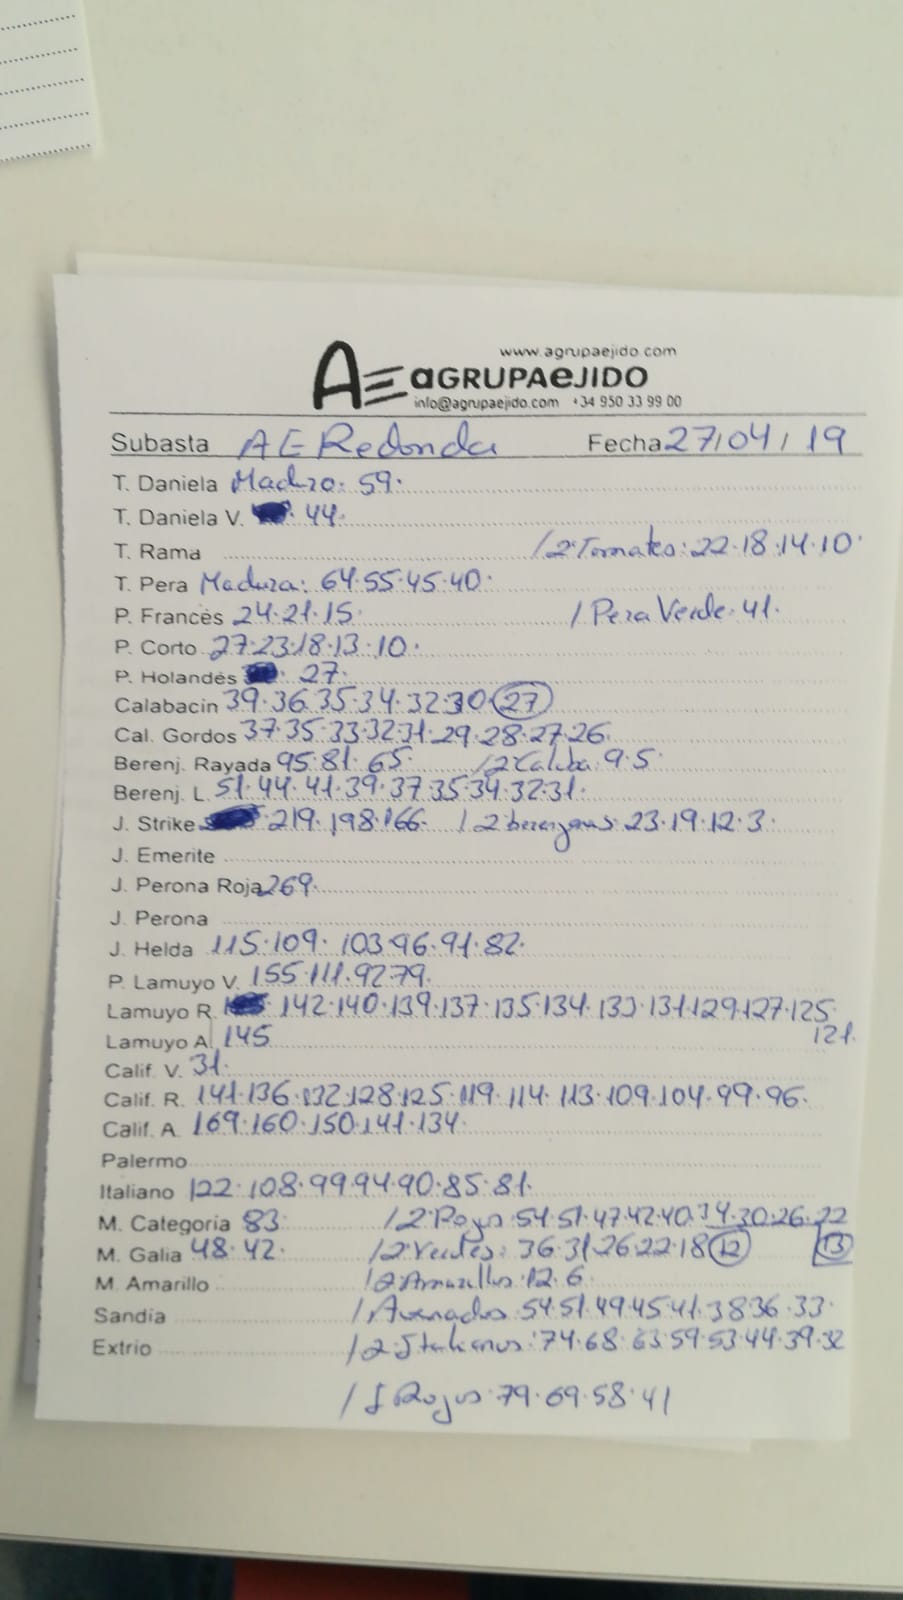 www.agrupaejido.com
AE aGRUPAeJIDO
info@agrupaejido.com +34 950 33 99 00
Subasta AE Redonda Fecha 27/04/19
T. Daniela Maduro: 59.
T. Daniela V. 44.
T. Rama /2ªTomates: 22.18.14.10.
T. Pera Madura: 64.55.45.40.
P. Francés 24.21.15. / Pera Verde. 41.
P. Corto 27.23.18.13.10.
P. Holandés 27.
Calabacin 39.36.35.34.32.30.27
Cal. Gordos 37.35.33.32.31.29.28.27.26.
Berenj. Rayada 95.81.65. /2ª Calaba. 9.5.
Berenj. L. 51.44.41.39.37.35.34.32.31.
J. Strike 219.198.166. /2ª berenjenas: 23.19.12.3.
J. Emerite
J. Perona Roja 269.
J. Perona
J. Helda 115.109.103.96.91.82.
P. Lamuyo V. 155.111.92.79.
Lamuyo R. 142.140.139.137.135.134.133.131.129.127.125.
121.
Lamuyo A. 145
Calif. V. 31.
Calif. R. 141.136.132.128.125.119.114.113.109.104.99.96.
Calif. A. 169.160.150.141.134.
Palermo
Italiano 122.108.99.94.90.85.81.
M. Categoría 83. /2ª Rojos: 54.51.47.42.40.34.30.26.22
M. Galia 48.42. /2ª Verdes: 36.31.26.22.18 12 13
M. Amarillo /2ª Amarillos: 12.6.
Sandía /Asurados: 54.51.49.45.41.38.36.33.
Extrio /2ª Italianos: 74.68.63.59.53.44.39.32
Rojos: 79.69.58.41